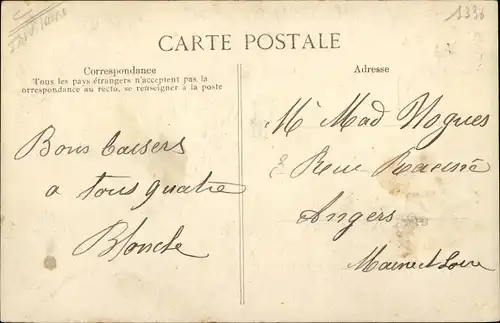 1336
CARTE POSTALE
Correspondance
Tous les pays étrangers n'acceptent pas la
correspondance au recto, se renseigner à la poste
Adresse
Bons baisers
a tous quatre
Blanche
Mr Mad Nogues
Rue Racine
Angers
Maine et Loire